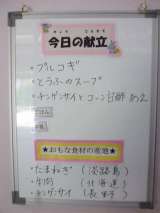 きょう こんだて
今日の献立
・プルコギ
・とうふのスープ
・チンゲンサイとコーン甘酢あえ
ごはん
★おもな食材の産地★
・たまねぎ（淡路島）
・牛肉（北海道）
・チンゲンサイ（長野）